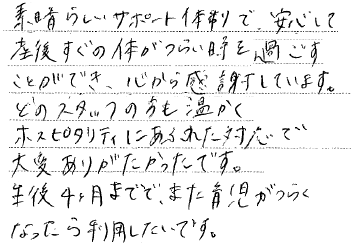 素晴らしいサポート体制で、安心して
産後すぐの体がつらい時を過ごす
ことができ、心から感謝しています。
どのスタッフの方も温かく
ホスピタリティにあふれた対応で
大変ありがたかったです。
生後4ヶ月までで、また育児がつらく
なったら利用したいです。